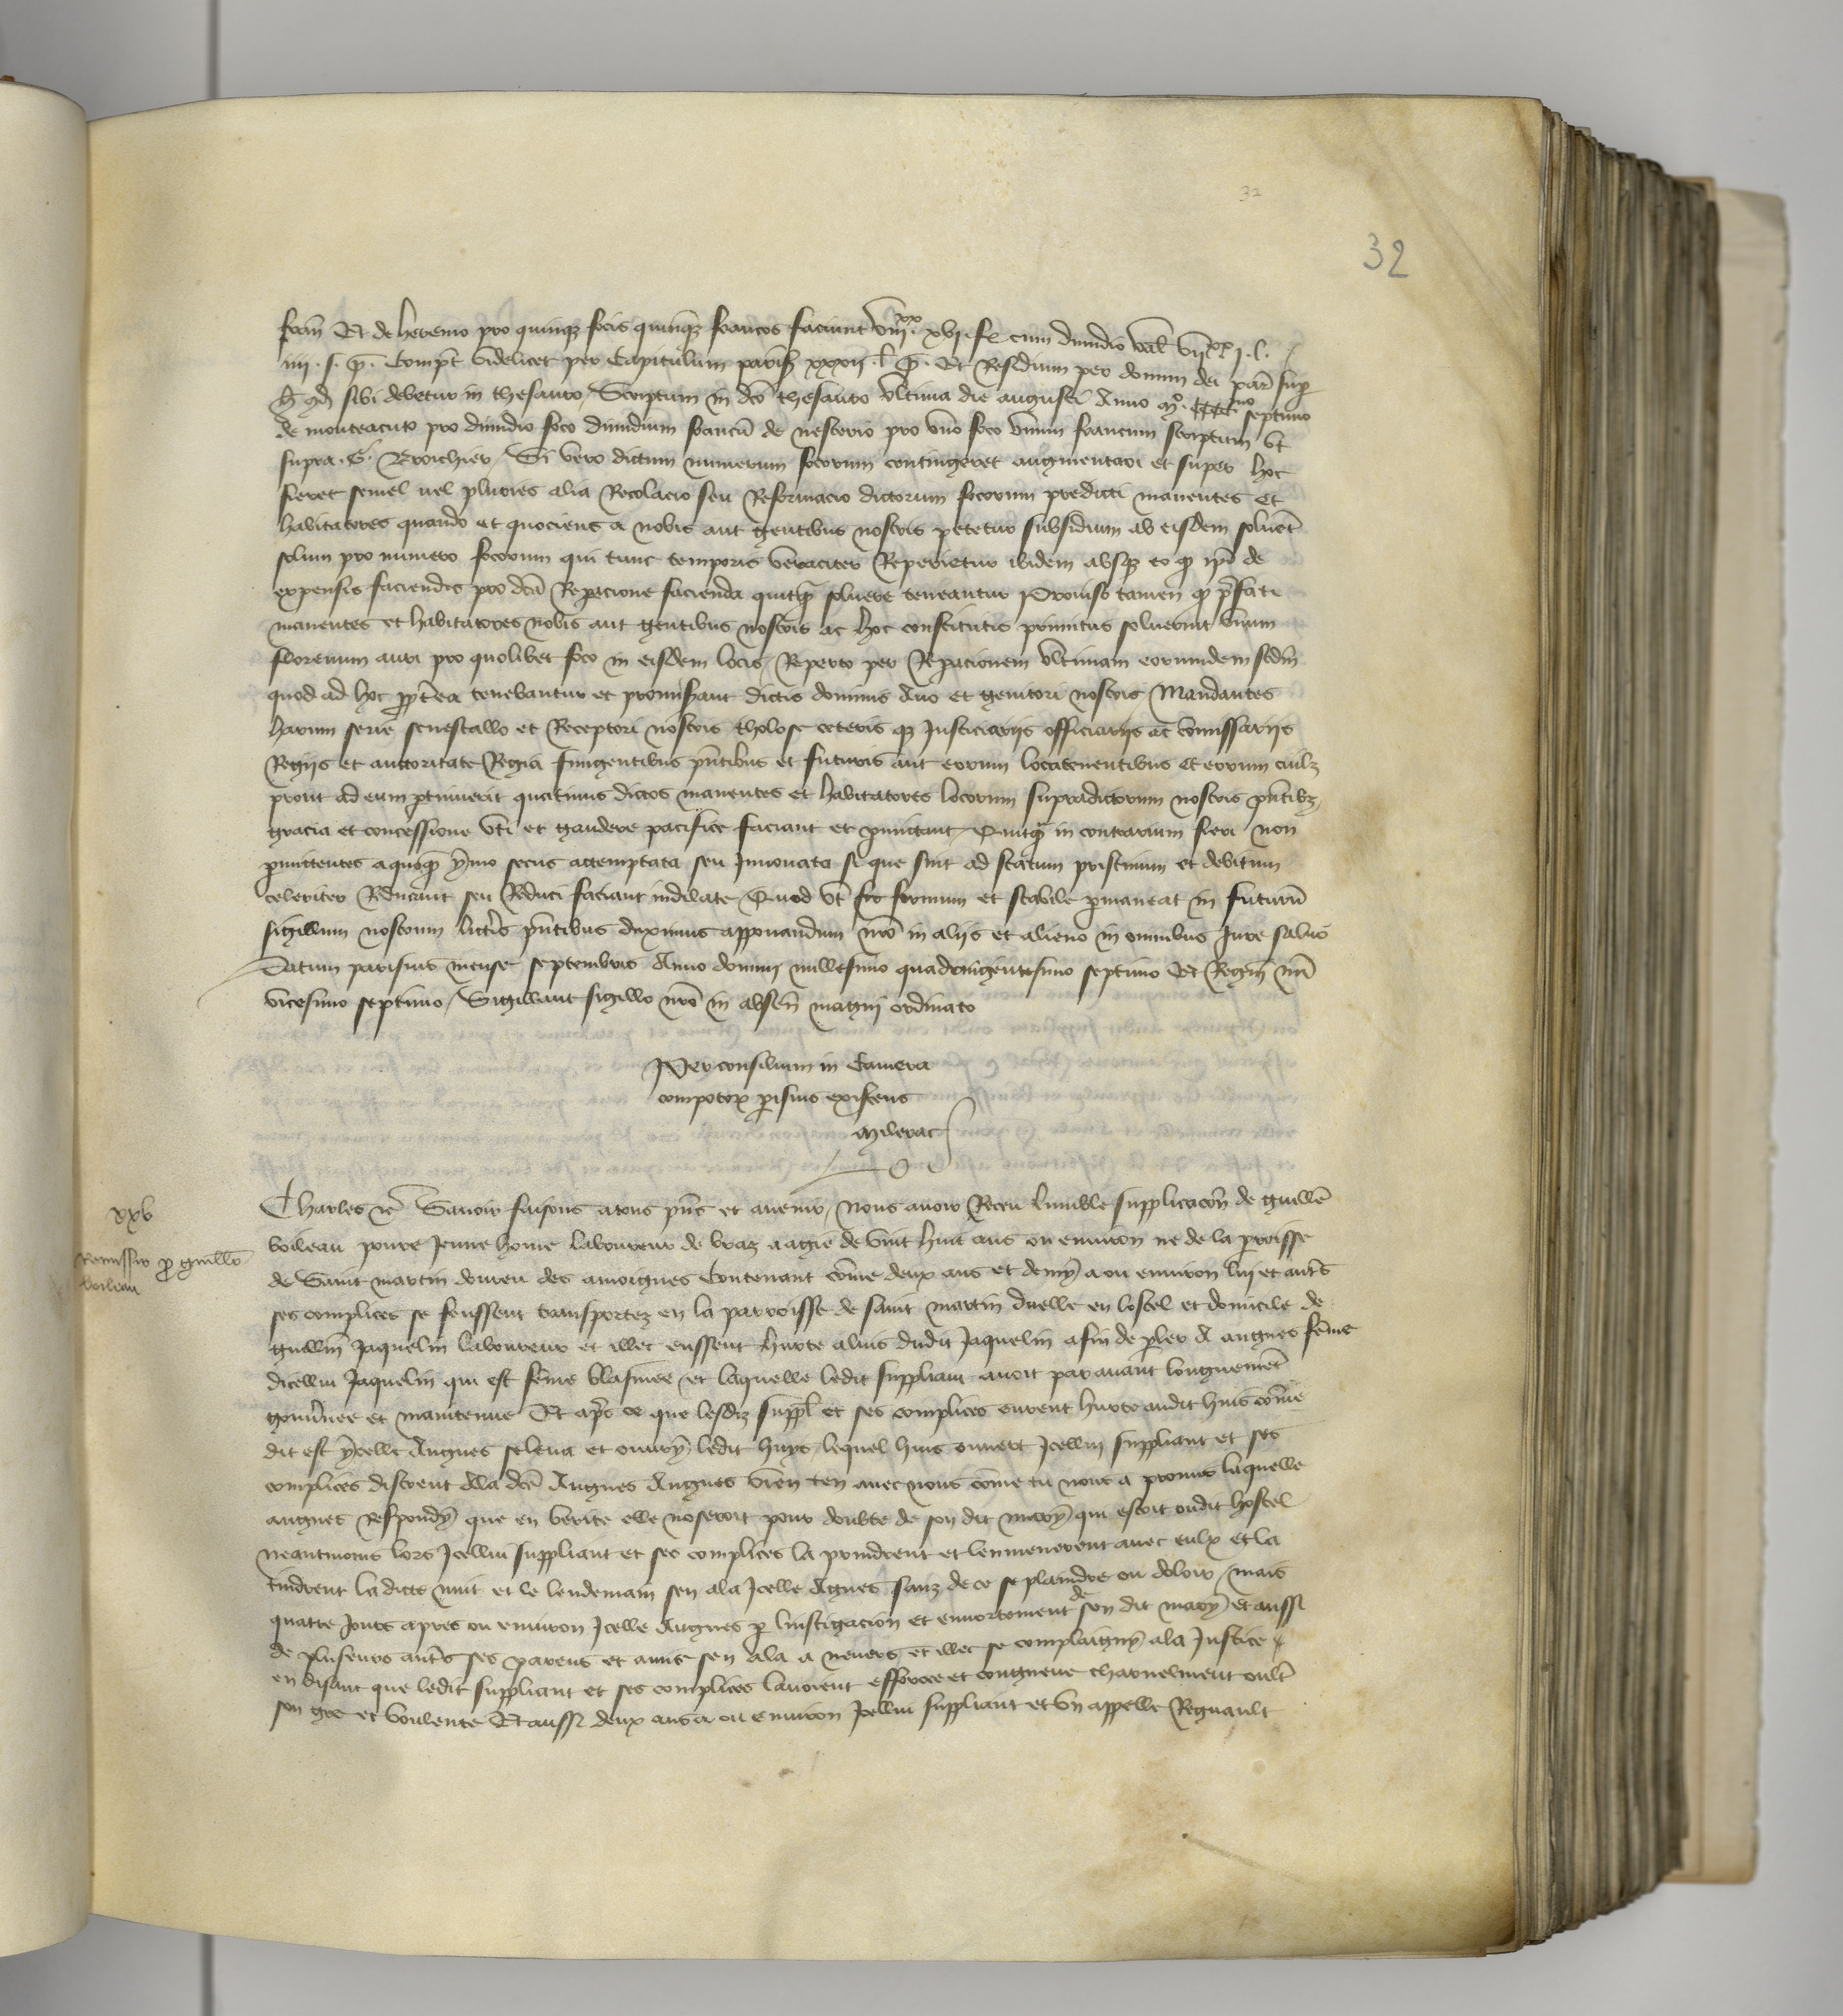 32
32
fran Et de heremo pro quinqz focis quinqz francos faciunt viiixx. xvi. fr cum dimidio val vii xx i. l.
iiii. s. p. Compt videlicet per Capitulum paris xxxii. l p. Et Residuum per domum dei par sup
hoc qd sibi debetur in thesauro / Scriptum in dco thesauro vltima die augusti Anno mo. cccc mo septimo
de monteacuto pro dimidio foco dimidium francu de nescerio pro vno foco vnum francum scriptum vt
supra. G. Broichier / Si vero dictum numerum focorum contingeret augmentari et super hoc
fieret semel vel plures alia Recolacio seu Reformacio dictorum focorum predicti manentes et
habitatores quando et quociens a nobis aut gentibus nostris petetur subsidium ab eisdem soluet
solum pro numero focorum qui tunc temporis veraciter Reperietur ibidem absqz eo q ipi de
expensis faciendis pro dca Repacione facienda quitq soluere teneantur Prouiso tamen q prefati
manentes et habitatores nobis aut gentibus nostris ac hoc constitutis primitus soluerint vnum
florenum auri pro quolibet foco in eisdem locis / Reperto per Repacionem vltimam eorumdem scdm
quod ad hoc pptea tenebantur et promiserant dictis dominis Auo et genitori nostris / Mandantes
harum serie senescallo et Receptori nostris tholose ceteris qz Justiciariis officiariis ac comissariis
Regiis et auctoritate Regia fungentibus pntibus et futuris aut eorum locatenentibus et eorum cuilz
prout ad eum ptinuerit quatinus dictos manentes et habitatores locorum supradictorum nostris pntibz
gracia et concessione vti et gaudere pacifice faciant et pmittant / Quitq in contrarium fieri non
pmittentes a quoq ymo secus attemptata seu Jnnouata si que sint ad statum pristinum et debitum
celeriter Reducant seu Reduci faciant indilate / Quod vt fir firmum et stabile pmaneat in futuru
sigillum nostrum litteris pntibus duximus apponandum nro in aliis et alieno in omnibus Jure saluo
Datum parisius mense septembris Anno domini millesimo quadringentesimo septimo Et Regni nri
vicesimo septimo / Sigillant sigillo nro in absen magni ordinato
Per consilium in Camera
compotor parisius existens
Milerac
xxv
Remissio p guillo
boileau
Charles etc Sauoir faisons a tous pns et auenir / Nous auoir Receu lumble supplicacon de guille
boileau poure Jeune home laboureur de braz aagie de vint huit ans ou enuiron ne de la proisse
de Saint martin dorieu des amoignes Contenant come deux ans et demy a ou enuiron lui et autres
ses complices se feussent transportez en la parroisse de saint martin duelle en lostel et domicile de
guillin Jaquelin laboureur et illec eussent hurte a luis dudit Jaquelin afin de pler a angnes feme
dicellui Jaquelin qui est feme blasmee et laquelle ledit suppliant auoit par auant longuement
gouuernee et maintenue Et apres ce que lesdiz suppl et ses complices eurent hurte audit huis come
dit est ycelle Angnes se leua et ouury ledit huys lequel huis ouuert Jcellui suppliant et ses
complices disrent A la dce Angnes Angnes vien ten auec nous come tu nous a promis laquelle
angnes Respondy que en verite elle noseroit pour doubte de son dit mary qui estoit oudit hostel
Neantmoins lors Jcellui suppliant et ses complices la prindrent et lenmenerent auec eulx et la
tindrent la dicte nuit et le lendemain sen ala Jcelle Agnes sanz de ce se plaindre ou doloir / mais
quatre Jours apres ou enuiron Jcelle Angnes p linstigacion et enortement de son dit mary et aussi
de pluseurs autres ses parens et amis sen ala a neuers et illec se complaigny a la Justice
en disant que ledit suppliant et ses complices lauoient efforcee et congneue charnelment oultre
son gre et voulente Et aussi deux ans a ou enuiron Jcellui suppliant et vn appelle Regnault